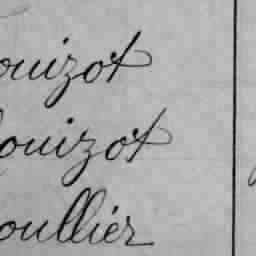 ouizot
ouizot
oullier